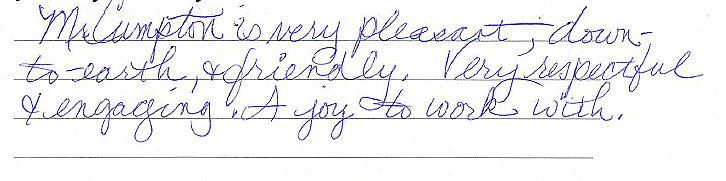 Mr. Cumpton is very pleasant, down-
to-earth, & friendly. Very respectful
& engaging. A joy to work with.